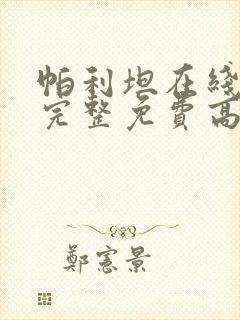 帕利坦在綫
完整免費高
鄭憲景